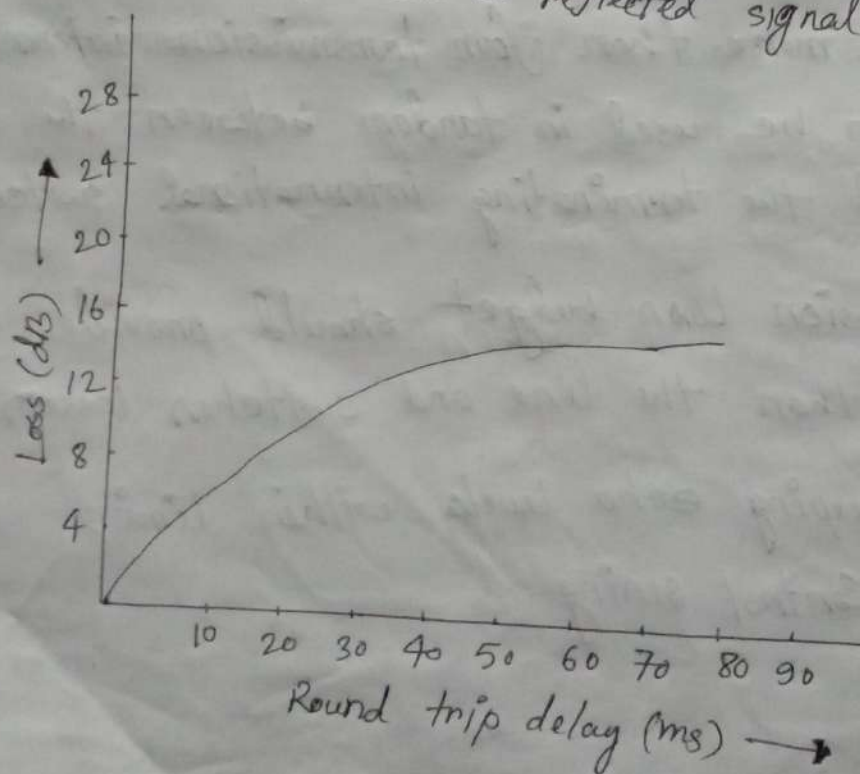 reflected signal
28
24
20
16
12
8
4
Loss (dB)
10 20 30 40 50 60 70 80 90
Round trip delay (ms)